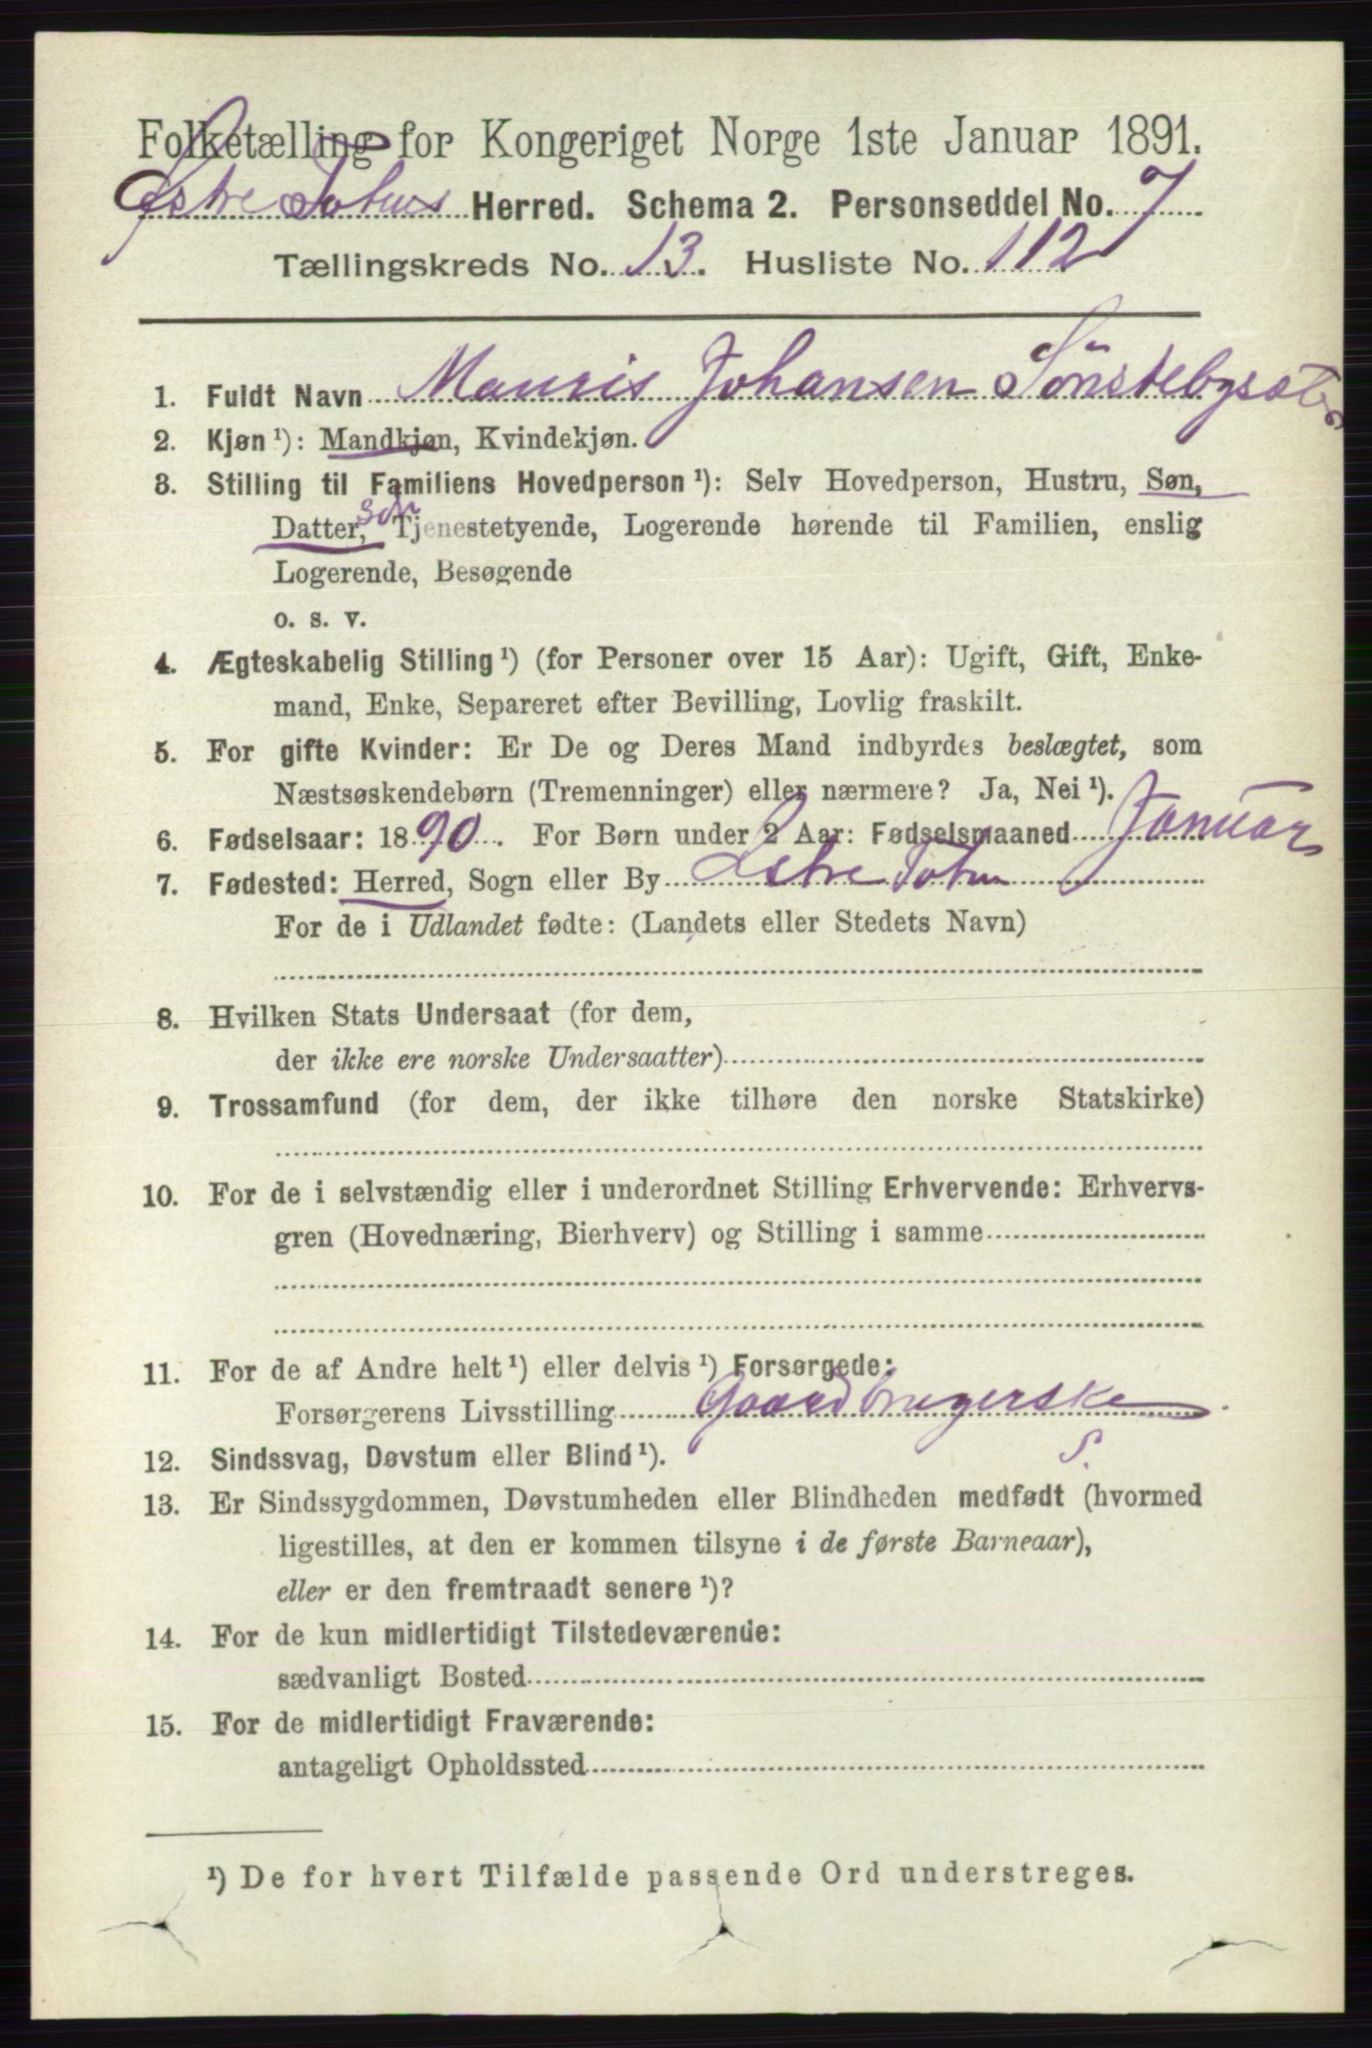 Folketælling for Kongeriget Norge 1ste Januar 1891.
Østre Totens Herred. Schema 2. Personseddel No. 7
Tællingskreds No. 13. Husliste No. 112
1. Fuldt Navn Mauris Johansen Sönstebysst
2. Kjøn ¹): Mandkjøn, Kvindekjøn.
3. Stilling til Familiens Hovedperson ¹): Selv Hovedperson, Hustru, Søn,
Datter, søn Tjenestetyende, Logerende hørende til Familien, enslig
Logerende, Besøgende
o. s. v.
4. Ægteskabelig Stilling ¹) (for Personer over 15 Aar): Ugift, Gift, Enke-
mand, Enke, Separeret efter Bevilling, Lovlig fraskilt.
5. For gifte Kvinder: Er De og Deres Mand indbyrdes beslægtet, som
Næstsøskendebørn (Tremenninger) eller nærmere? Ja, Nei ¹).
6. Fødselsaar: 1890. For Børn under 2 Aar: Fødselsmaaned Januar
7. Fødested: Herred, Sogn eller By Østre Toten
For de i Udlandet fødte: (Landets eller Stedets Navn)
8. Hvilken Stats Undersaat (for dem,
der ikke ere norske Undersaatter)
9. Trossamfund (for dem, der ikke tilhøre den norske Statskirke)
10. For de i selvstændig eller i underordnet Stilling Erhvervende: Erhvervs-
gren (Hovednæring, Bierhverv) og Stilling i samme
11. For de af Andre helt ¹) eller delvis ¹) Forsørgede:
Forsørgerens Livsstilling Gaardbrugerske
S.
12. Sindssvag, Døvstum eller Blind ¹).
13. Er Sindssygdommen, Døvstumheden eller Blindheden medfødt (hvormed
ligestilles, at den er kommen tilsyne i de første Barneaar),
eller er den fremtraadt senere ¹)?
14. For de kun midlertidigt Tilstedeværende:
sædvanligt Bosted
15. For de midlertidigt Fraværende:
antageligt Opholdssted
¹) De for hvert Tilfælde passende Ord understreges.